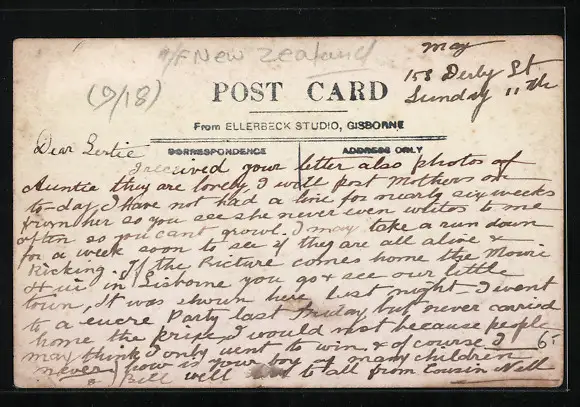 N/F New Zealand
(9/18)
May
153 Derby St
Sunday 11th
POST CARD
From ELLERBECK STUDIO, GISBORNE
CORRESPONDENCE
ADDRESS ONLY
Dear Gertie
I received your letter also photos of
Auntie they are lovely I will post Mothers on
to-day I have not had a line for nearly six weeks
from her so you see she never even writes to me
often so you cant growl. I may take a run down
for a week soon to see if they are all alive &
Kicking. If the Picture comes home the
in Gisborne you go & see our little
town, It was shown here last night I went
to a eucre Party last Friday but never carried
home the prize, I would not because people
may think I only went to win & of course I
never) how is your boy & many children
Bill well to all from Cousin Nell
6.